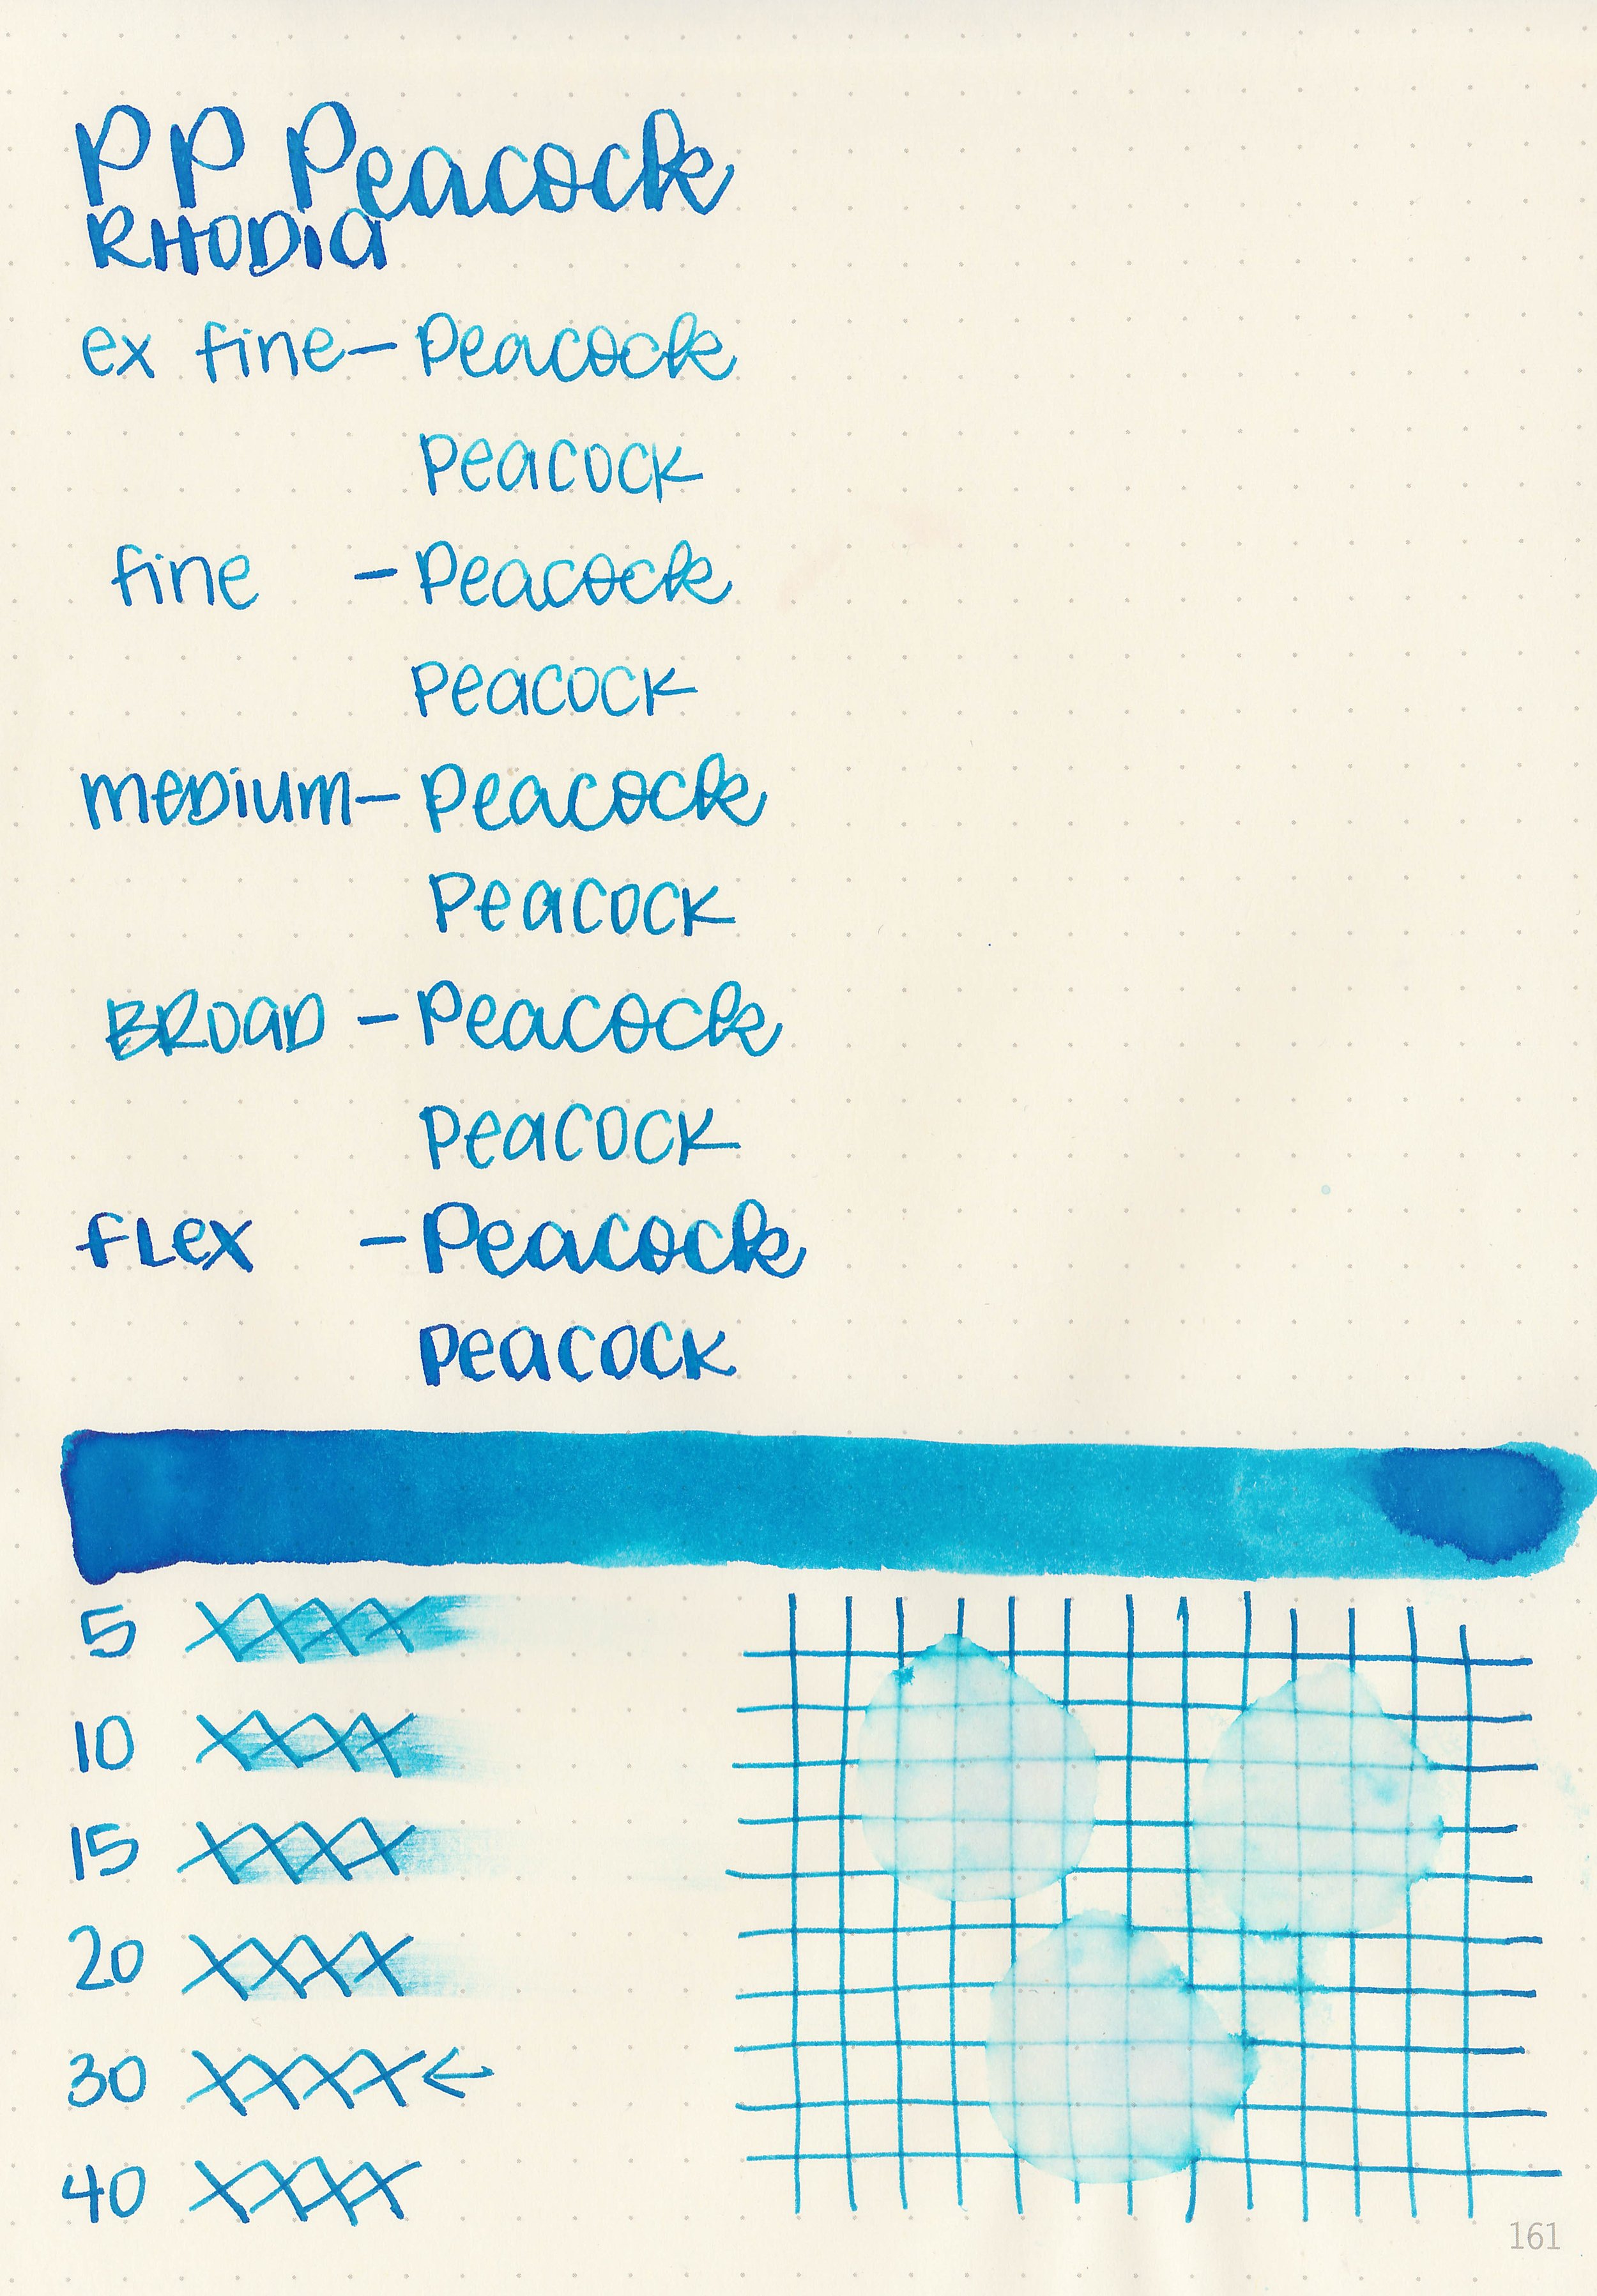 PP Peacock
RHODIA
ex fine - Peacock
Peacock
fine - Peacock
Peacock
meDium - Peacock
Peacock
BROAD - Peacock
Peacock
fLex - Peacock
Peacock
5 XXXX
10 XXXX
15 XXXX
20 XXXX
30 XXXX ←
40 XXXX
161